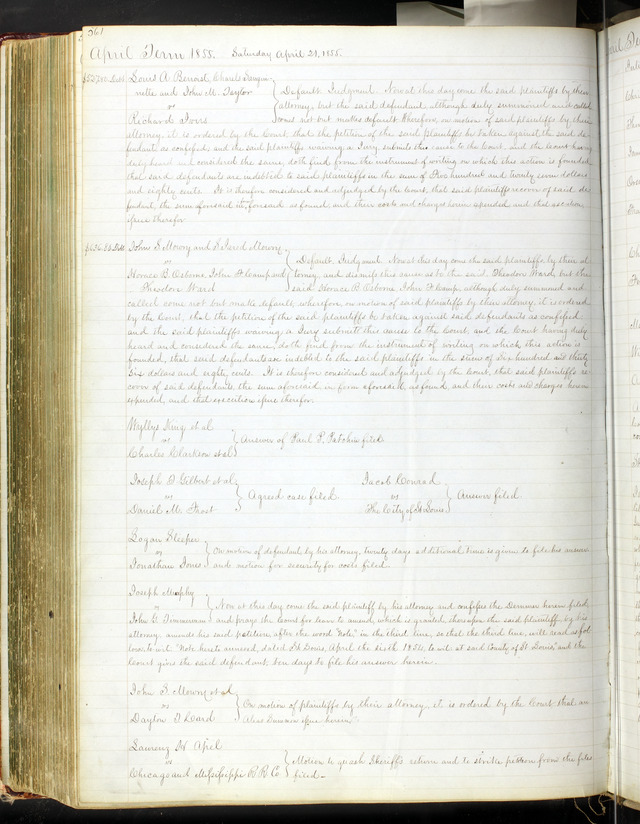 361
April Term 1855. Saturday April 21, 1855.
Louis A. Benoist, Charles
and John M. Taylor
vs
Richard Ivers
Default. Judgment. Now at this day come the said plaintiffs by their
attorney, but the said defendant, although duly summoned and called
comes not but makes default. Wherefore, on motion of said plaintiffs by their
attorney, it is ordered by the Court, that the petition of the said plaintiffs be taken against the said de-
fendant as confessed, and the said plaintiffs waiving a Jury, submits this cause to the Court, and the Court having
duly heard and considered the same, doth find from the instrument of writing on which this action is founded,
that said defendants are indebted to said plaintiffs in the sum of Five hundred and twenty seven dollars
and eighty cents. It is therefore considered and adjudged by the Court, that said plaintiffs recover of said de-
fendant, the sum aforesaid in form aforesaid as found, and their costs and charges herein expended and that execution
issue therefor
$636.80 Debt
John S. Mowry and S. Jared Mowry
vs
Horace B. Osborne, John F. Camp and
Theodore Ward
Default. Judgment. Now at this day come the said plaintiffs, by their at-
torney, and dismiss this cause as to the said Theodore Ward, but the
said Horace B. Osborne, John F. Camp although duly summoned and
called, come not but make default, wherefore, on motion of said plaintiffs by their attorney, it is ordered
by the Court, that the petition of the said plaintiffs be taken against said defendants as confessed,
and the said plaintiffs waiving a Jury submits this cause to the Court, and the Court having duly
heard and considered the same, doth find from the instrument of writing on which this action is
founded, that said defendants are indebted to the said plaintiffs in the sum of Six hundred and thirty
six dollars and eighty cents. It is therefore considered and adjudged by the Court, that said plaintiffs re-
cover of said defendants, the sum aforesaid in form aforesaid, as found, and their costs and charges herein
expended, and that execution issue therefor.
Wyllys King et al
vs
Charles Clarkson et al
Answer of Paul P. filed
Joseph T Gilbert et al
vs
Daniel M. Frost
Agreed case filed
Jacob Conrad
vs
The City of St Louis
Answer filed
Logan Sleeper
vs
Jonathan Jones
On motion of defendant by his attorney, twenty days additional time is given to file his answer
and motion for security for costs filed.
Joseph Murphy
vs
John G. Timmerman
Now at this day come the said plaintiff by his attorney and confesses the Demurrer herein filed,
and prays the Court for leave to amend, which is granted, thereupon the said plaintiff by his
attorney, amends his said petition after the word "Note," in the third line, so that the third line, will read as fol-
lows, to wit "Note hereto annexed, dated St Louis, April the sixth 1854, to wit at said County of St Louis," and the
Court gives the said defendant, ten days to file his answer herein.
John S. Mowry et al
vs
Dayton D Ward
On motion of plaintiffs by their attorney, it is ordered by the Court that an
Alias Summon issue herein.
vs
Chicago and Mississippi R R Co
Motion to quash Sheriffs return and to strike petition from the files
filed.